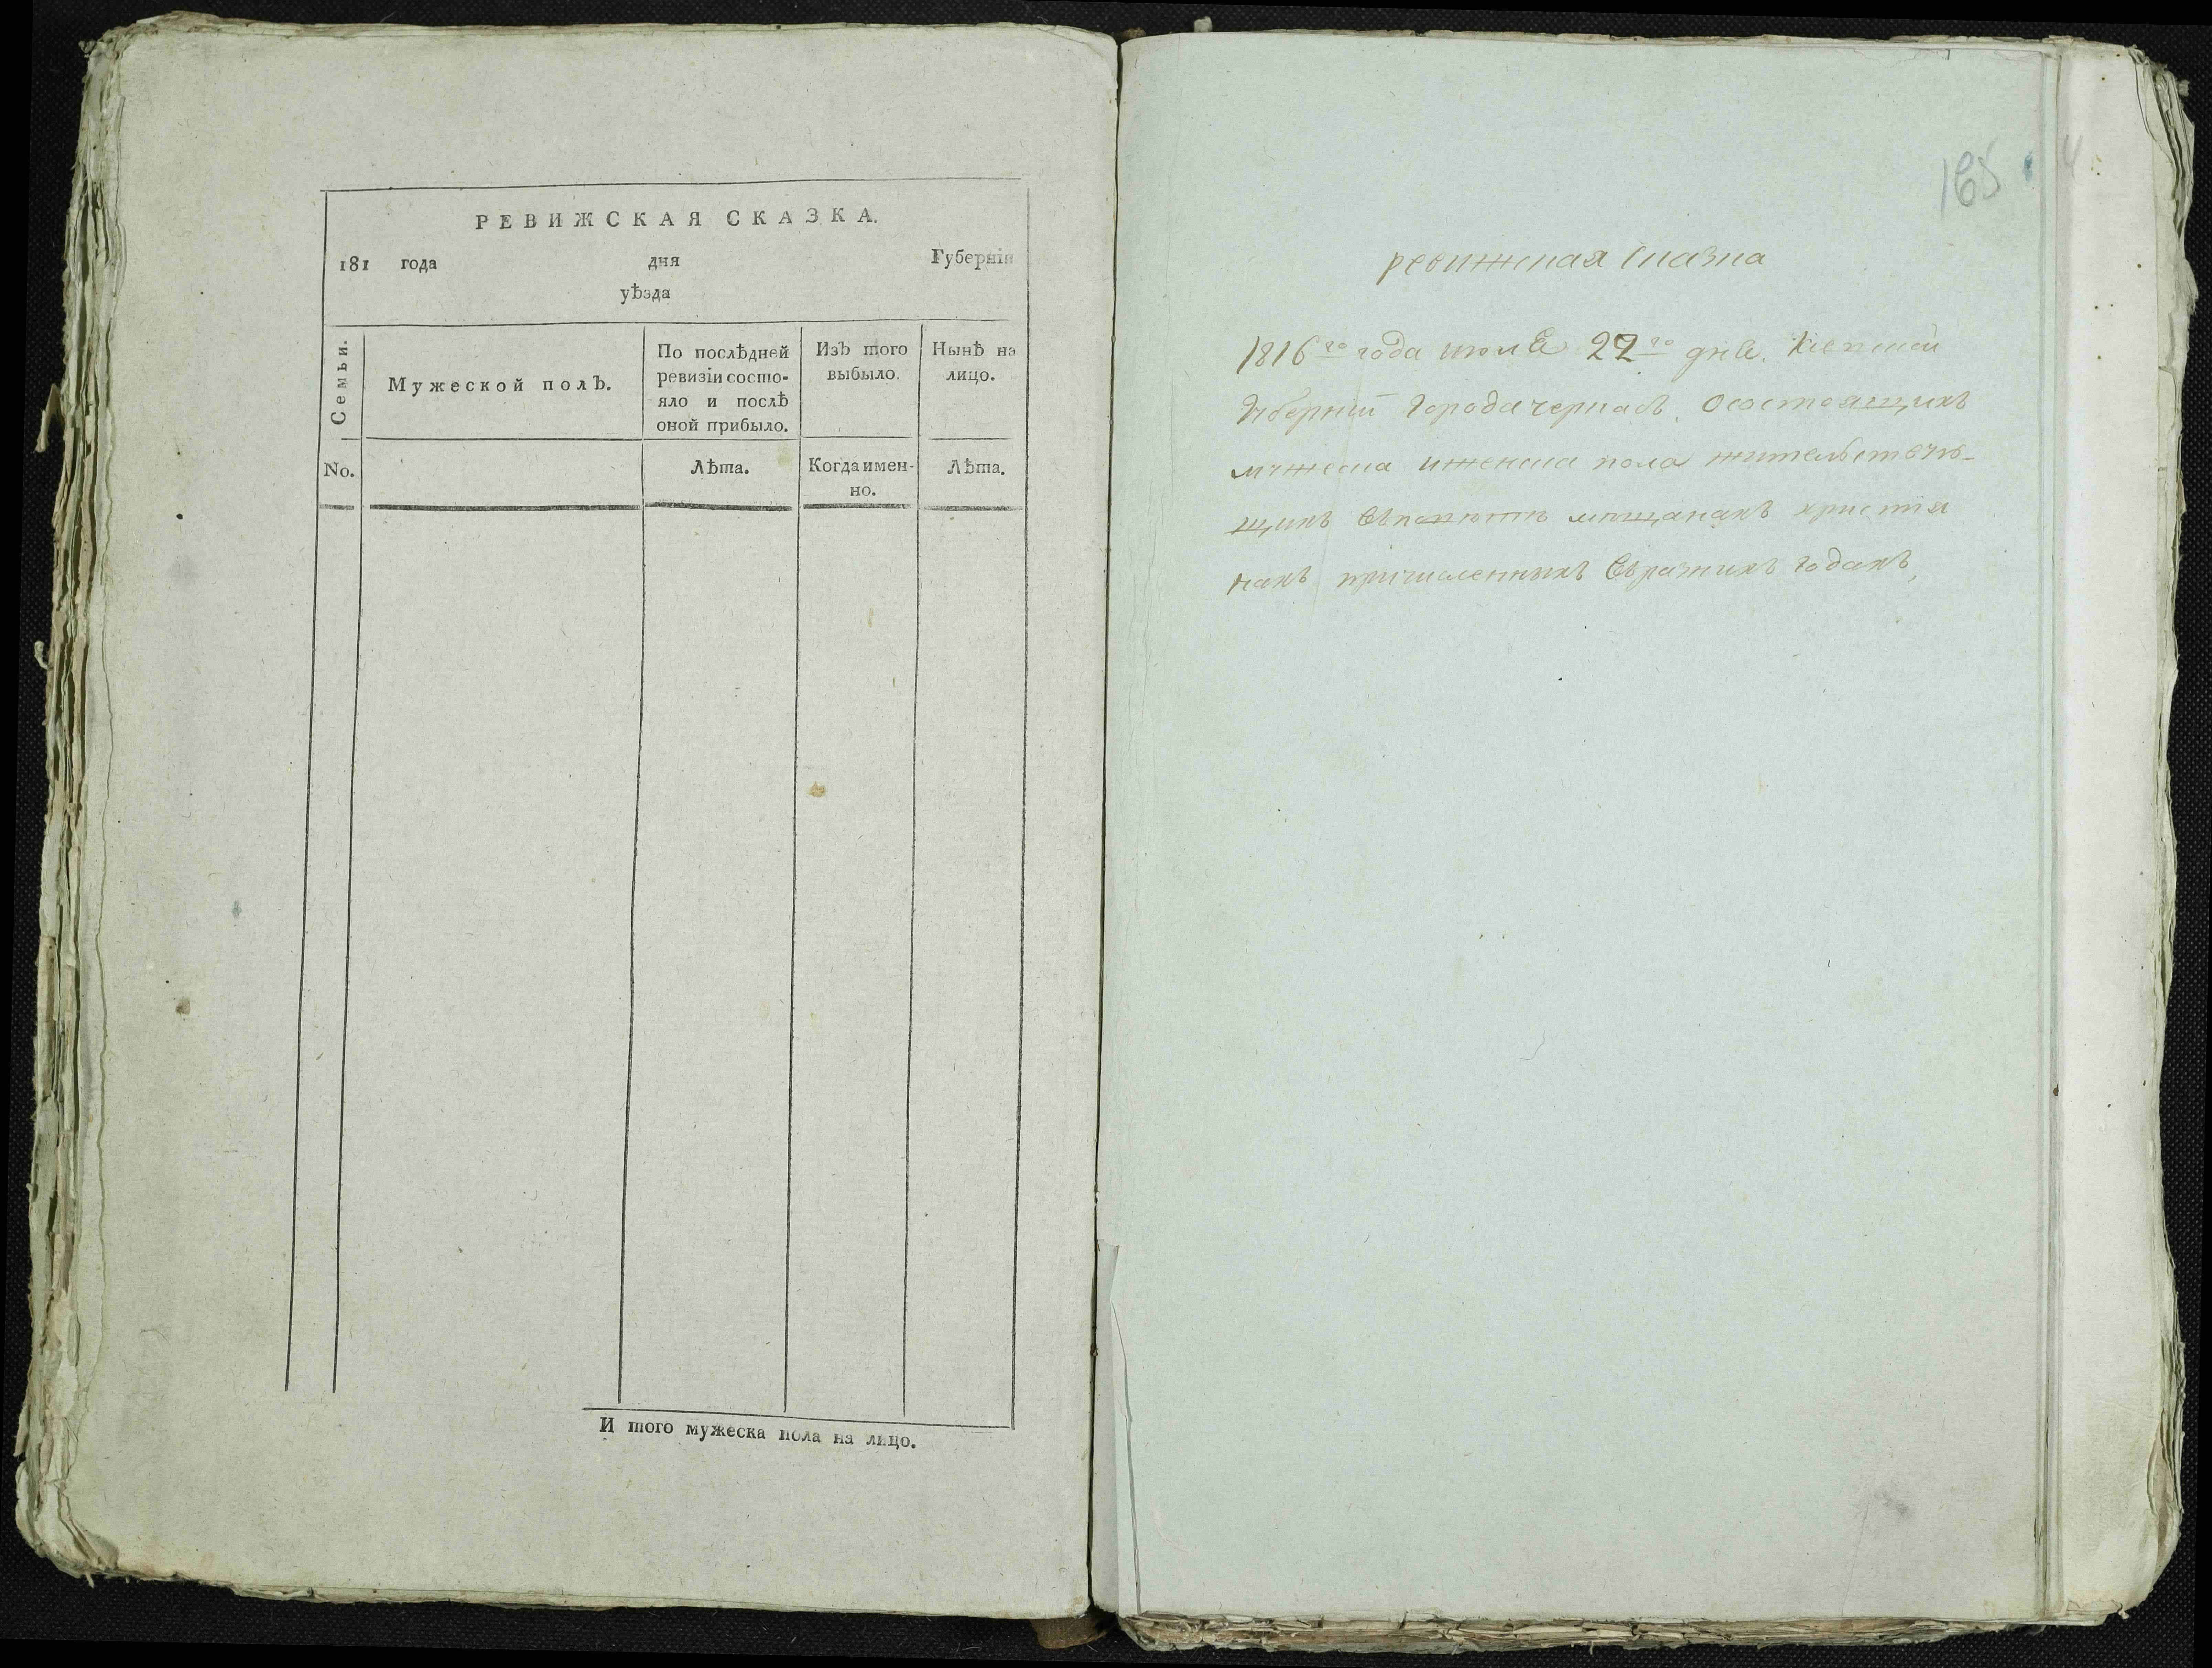 РЕВИЖСКАЯ СКАЗКА.
181 года дня Губерніи
уѣзда
Семьи.
Мужеской полЪ.
По послѣдней
ревизіи состо-
яло и послѣ
оной прибыло.
ИзЪ того
выбыло.
Нынѣ на
лицо.
No.
Лѣта.
Когда имен-
но.
Лѣта.
И того мужеска пола на лицо.
165
ревижская сказка
1816го года июля 22го дня. Киевской
Губернии города черкасъ. Осостоящихъ
мужеска иженска пола жительствую-
щихъ мещанахъ христия
нахъ причисленныхъ Вразнихъ годахъ,